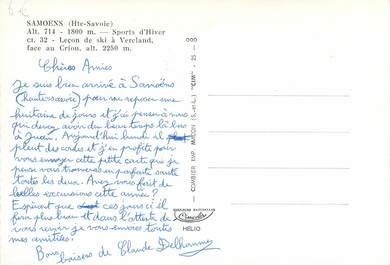 6€
SAMOËNS (Hte-Savoie)
Alt. 714 - 1800 m. — Sports d'Hiver
ci. 32 - Leçon de ski à Vercland,
face au Criou, alt. 2250 m.
Chères Amies
Je suis bien arrivé à Samoëns
(haute savoie) pour me reposer une
huitaine de jours et j'ai pensé à vous
qui devez avoir du beau temps là bas
à Juan. Aujourd'hui lundi il
pleut des cordes et j'en profite pour
vous envoyer cette petite carte qui je
pense vous trouvera en parfaite santé
toutes les deux. Avez vous fait de
belles excursions cette année?
Espérant que ces jours ci il
fera plus beau et dans l'attente de
vous revoir je vous envoie toutes
mes amitiés.
Bons
baisers de Claude Delhommez
COMBIER IMP. MACON (S.-et-L.) "CIM"
COULEURS NATURELLES
Combier
HELIO